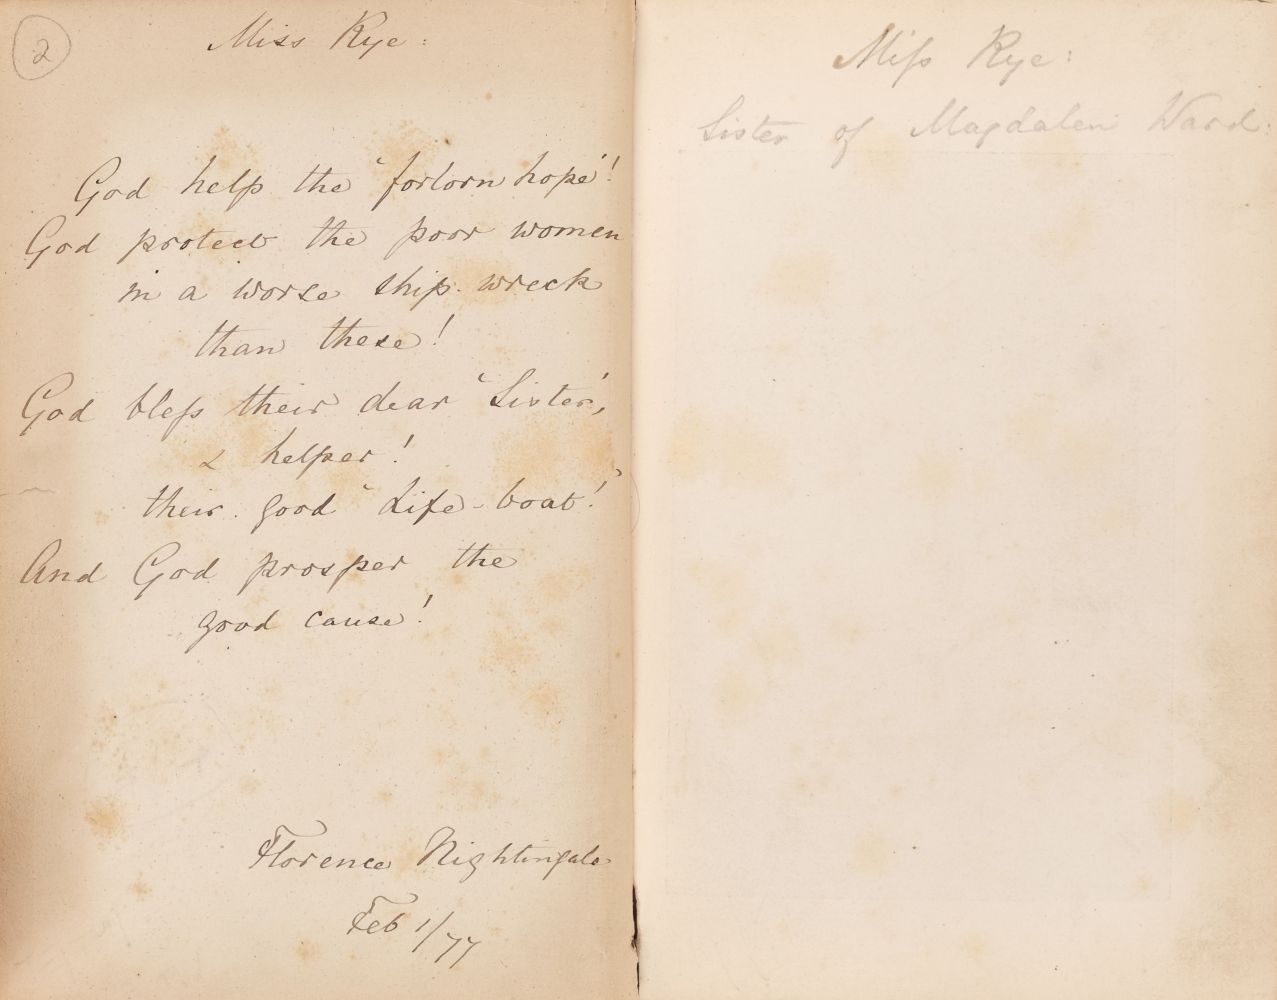 2
Miss Rye:
God help the 'forlorn hope'!
God protect the poor women
in a worse ship-wreck
than these!
God bless their dear 'Sister',
& helper!
their good "Life-boat"!
And God prosper the
good cause!
Florence Nightingale
Feb 1/77
Miss Rye:
Sister of Magdalen Ward: